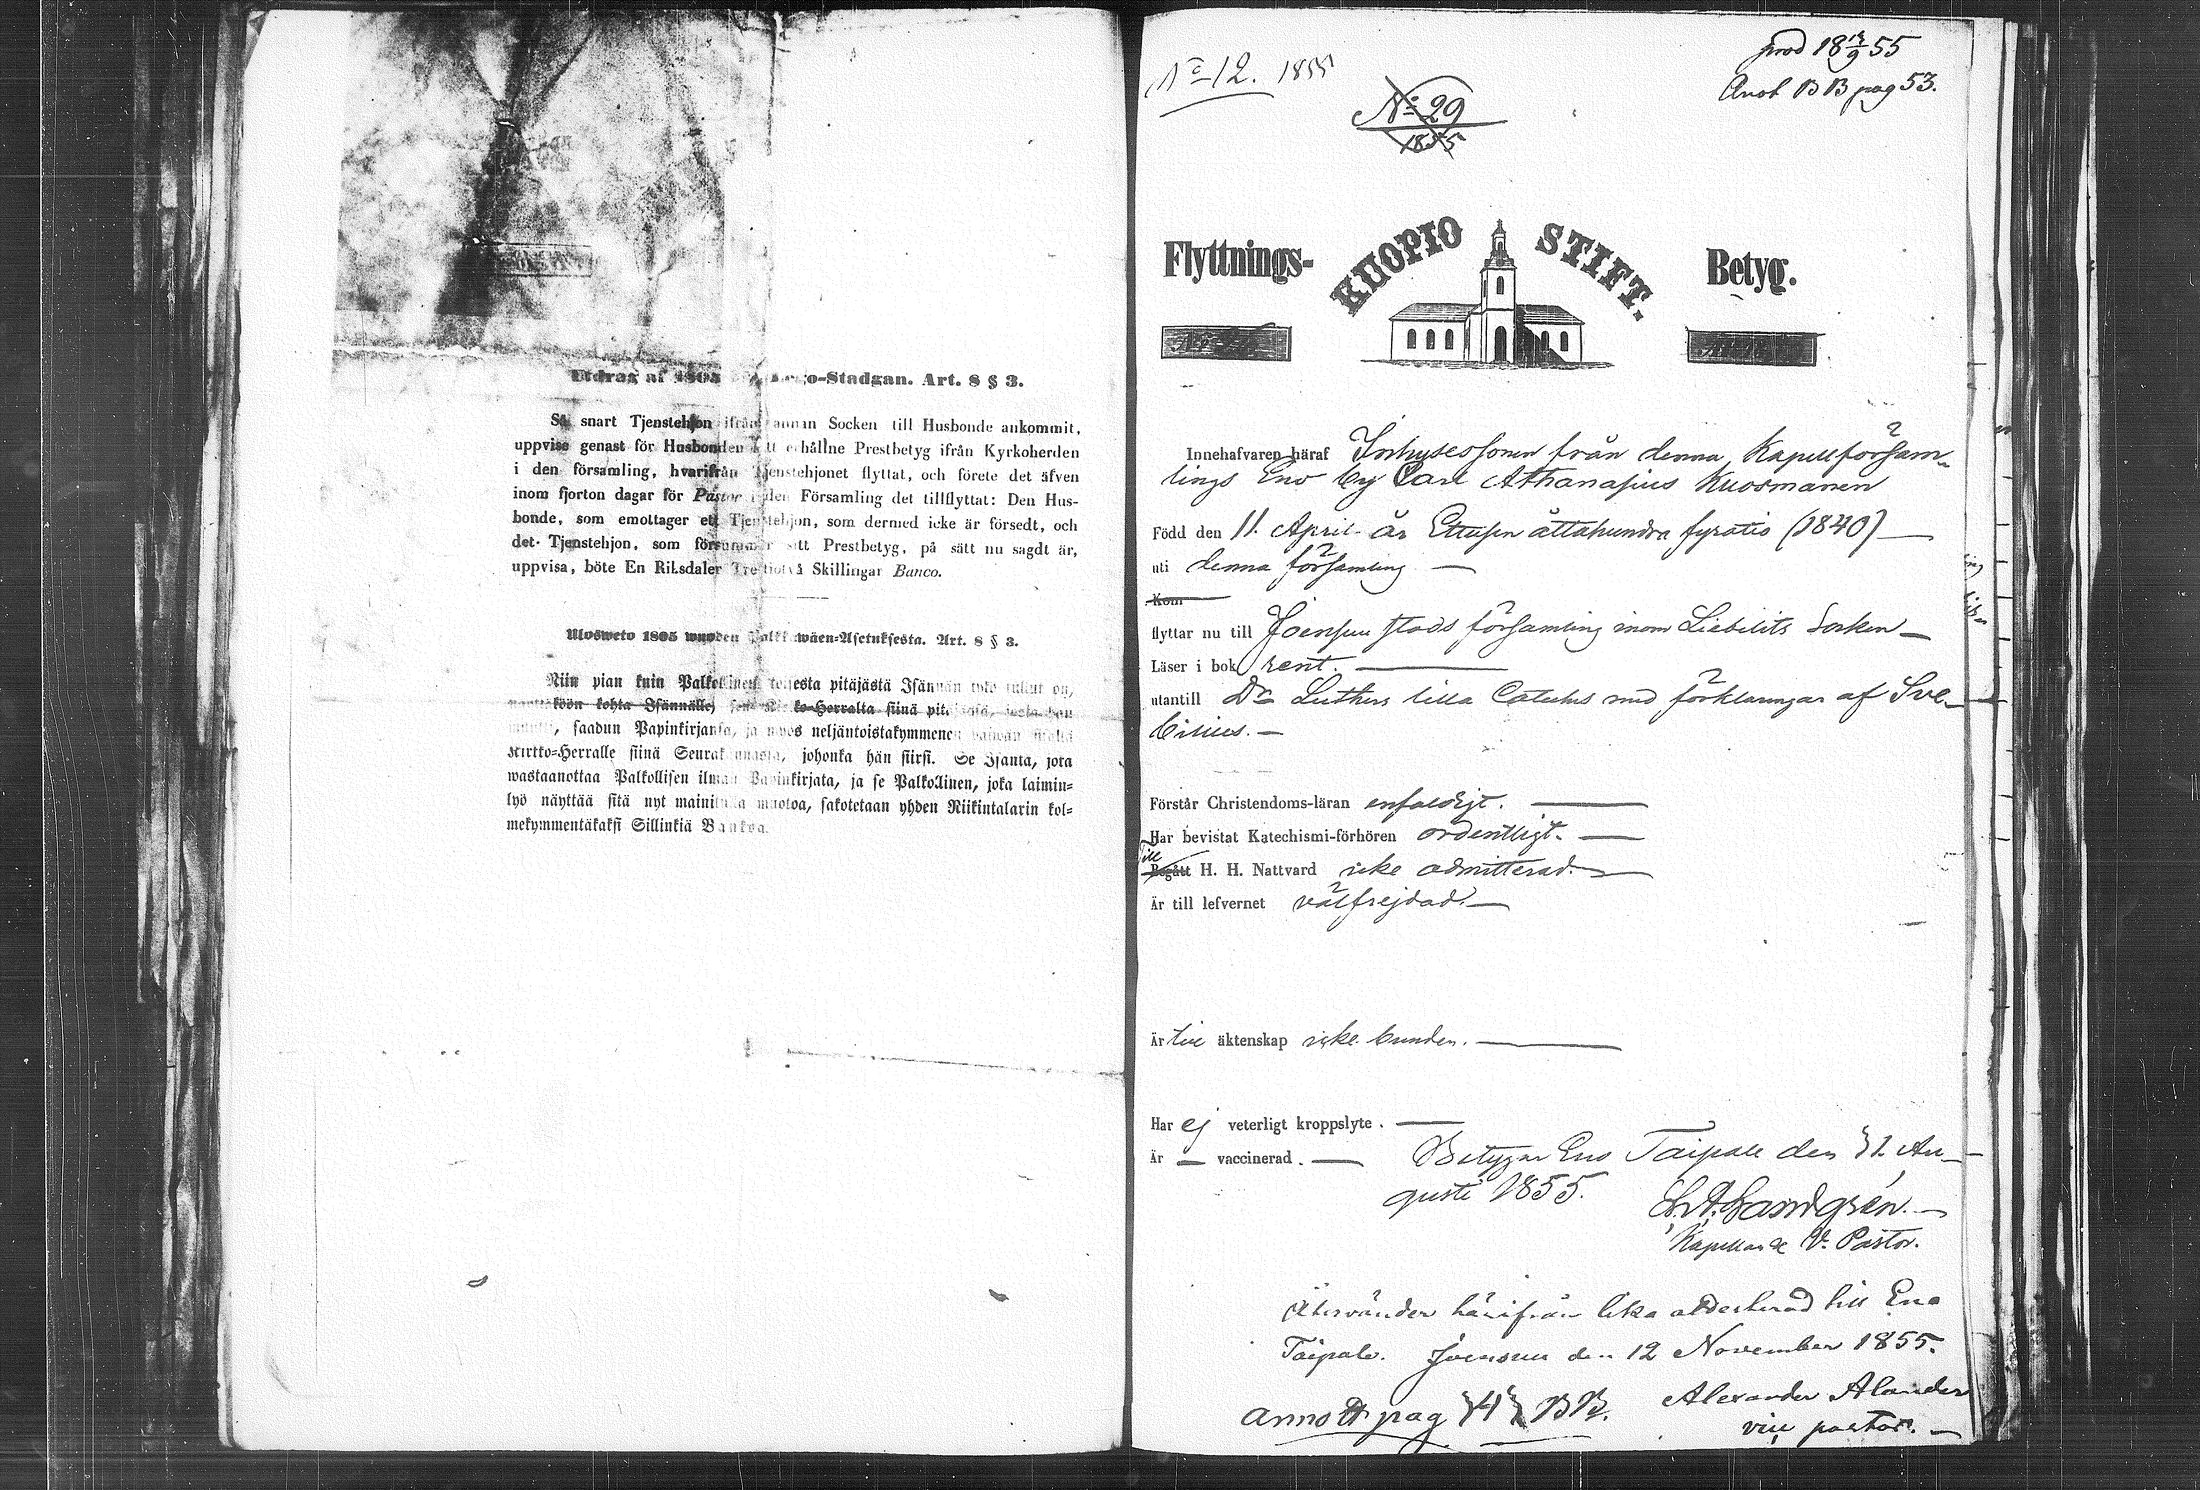 Utdrag af 1805 Lego-Stadgan. Art. 8 § 3.
Så snart Tjenstehjon ifrån annan Socken till Husbonde ankommit,
uppvise genast för Husbonden sitt erhållne Prestbetyg ifrån Kyrkoherden
i den församling, hvarifrån Tjenstehjonet flyttat, och förete det äfven
inom fjorton dagar för Pastor i den Församling det tillflyttat: Den Hus-
bonde, som emottager ett Tjenstehjon, som dermed icke är försedt, och
det Tjenstehjon, som försummar sitt Prestbetyg, på sätt nu sagdt är,
uppvisa, böte En Riksdaler Trettiotvå Skillingar Banco.
Ulosweto 1805 wuoden Palkkawäen-Asetuksesta. Art. 8 § 3.
Niin pian kuin Palkollinen toisesta pitäjästä Isännän tykö tullut on,
näyttäköön kohta Isännälle, sen Kirkko-Herralta siinä pitäjässä, josta hän
muutti, saadun Papinkirjansa, ja myös neljäntoistakymmenen päiwän sisällä
Kirkko-Herralle siinä Seurakunnassa, johonka hän siirsi. Se Isäntä, jota
wastaanottaa Palkollisen ilman Papinkirjata, ja se Palkollinen, joka laimin-
lyö näyttää sitä nyt mainitulla muotoa, sakotetaan yhden Riikintalarin kol-
mekymmentäkaksi Sillinkiä Bankoa.
No 12. 1855
prod 18 13/9 55
Anot BB pag 53.
No 29
1855
Flyttnings- KUOPIO STIFT. Betyg.
Innehafvaren häraf Inhysessonen från denna Kapellförsam-
lings Eno by Carl Athanasius Kuosmanen
Född den 11. April år Ettusen åttahundra fyratio (1840)
uti denna församling
Kom
flyttar nu till Joensuu stads församling inom Liebelits Socken
Läser i bok rent.
utantill Dr Luthers lilla Cateches med förklaringar af Sve-
bilius.
Förstår Christendoms-läran enfaldigt.
Har bevistat Katechismi-förhören ordentligt.
Till
Begått H. H. Nattvard icke admitterad.
Är till lefvernet välfrejdad.
Är till äktenskap icke bunden.
Har ej veterligt kroppslyte.
Är — vaccinerad. Betygar Eno Taipale den 31. Au-
gusti 1855.
Sandgrén.
Kapellan & V. Pastor.
Återvänder härifrån lika attesterad till Eno
Taipale. Joensuu den 12 November 1855.
Alexander Alander
vice pastor.
annott pag 141 BB.